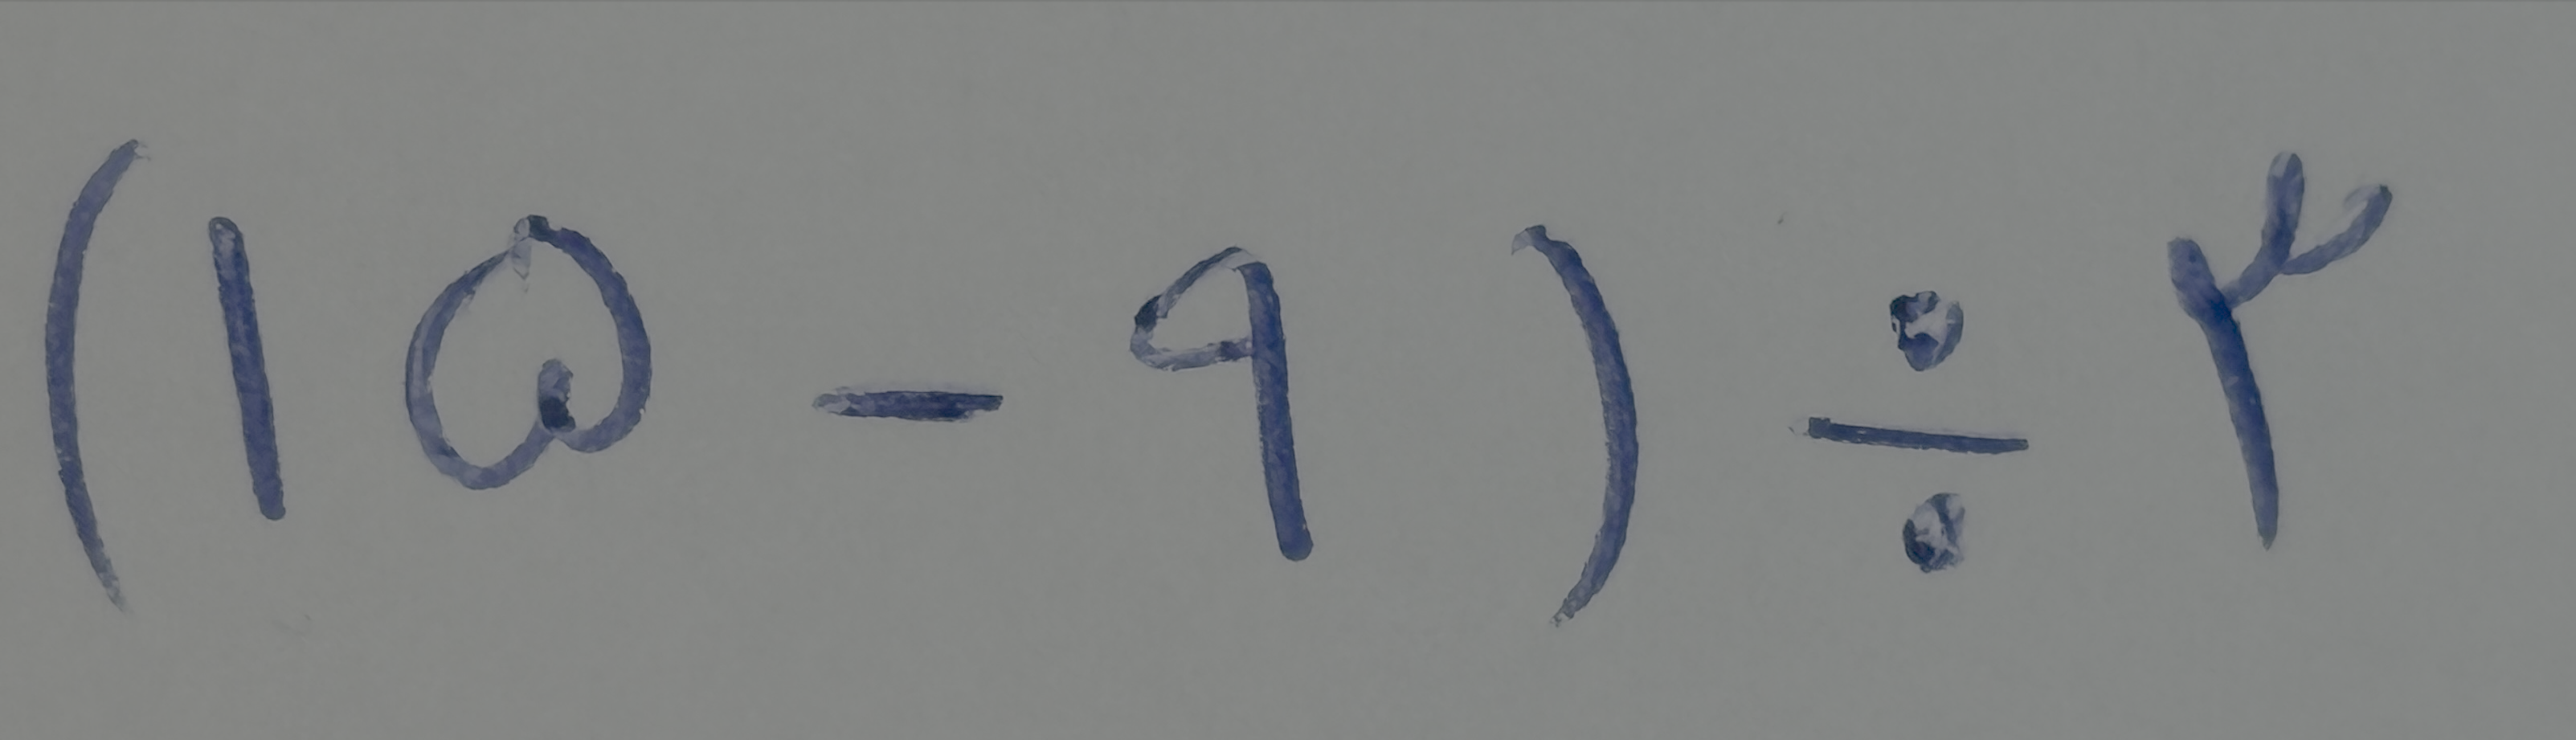 (۱۵ - ۹) ÷ ۳